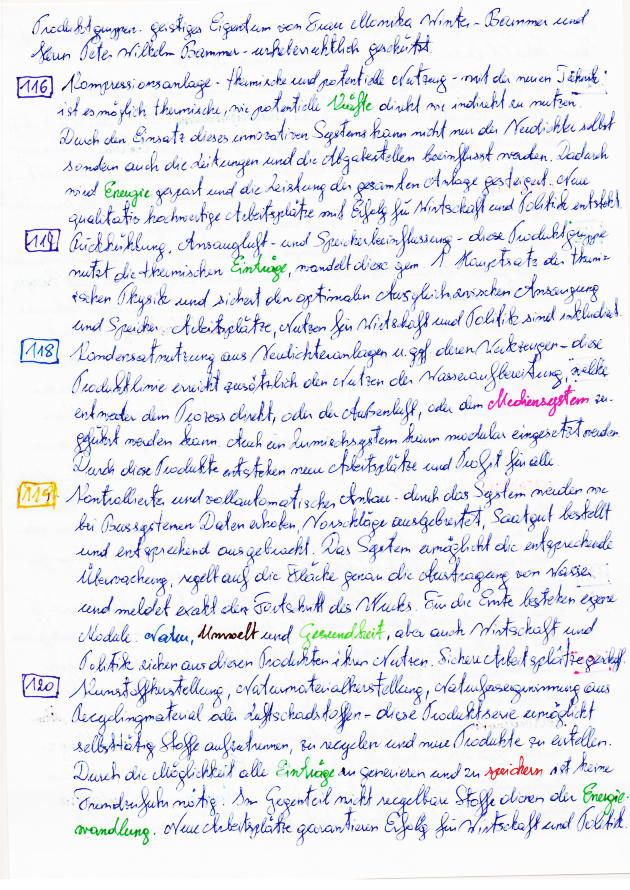 Produktgruppen. geistiges Eigentum von Frau Monika Winter-Brammer und
Herrn Peter Wilhelm Brammer - urheberrechtlich geschützt.
116 Kompressionsanlage - thermische und potentielle Nutzung - mit der neuen Technik
ist es möglich thermische, wie potentielle Kräfte direkt wie indirekt zu nutzen.
Durch den Einsatz dieses innovativen Systems kann nicht nur der Verdichter selbst
sondern auch die Leitungen und die Abgabestellen beeinflusst werden. Dadurch
wird Energie gespart und die Leistung der gesamten Anlage gesteigert. Neue
qualitativ hochwertige Arbeitsplätze mit Erfolg für Wirtschaft und Politik entsteht.
117 Rückkühlung, Ansaugluft- und Speicherbeinflussung - diese Produktgruppe
nutzt die thermischen Einträge, wandelt diese gem 1 Hauptsatz der thermi-
schen Physik und sichert den optimalen Ausgleich zwischen Ansaugung
und Speicher. Arbeitsplätze, Nutzen für Wirtschaft und Politik sind inkludiert.
118 Kondensatnutzung aus Verdichteranlagen u. ggf deren Werkzeugen - diese
Produktlinie erreicht zusätzlich den Nutzen der Wasseraufbereitung, welche
entweder dem Prozess direkt, oder der Aussenluft, oder dem Mediensystem zu-
geführt werden kann. Auch ein Zumischsystem kann modular eingesetzt werden.
Durch diese Produkte entstehen neue Arbeitsplätze und Profit für alle.
119 Kontrollierter und vollautomatischer Anbau - durch das System werden wie
bei Bussystemen Daten erhoben, Vorschläge ausgebreitet, Saatgut bestellt
und entsprechend ausgebracht. Das System ermöglicht die entsprechende
Überwachung, regelt auf die Fläche genau die Austragung von Wasser
und meldet exakt den Fortschritt des Wuchs. Für die Ernte bestehen eigene
Module. Natur, Umwelt und Gesundheit, aber auch Wirtschaft und
Politik ziehen aus diesen Produkten ihren Nutzen. Sichere Arbeitsplätze
120 Kunstoffherstellung, Naturmaterialherstellung, Naturfasergewinnung aus
Recyclingmaterial oder Luftschadstoffen - diese Produktserie ermöglicht
selbsttätig Stoffe aufzutrennen, zu recyclen und neue Produkte zu erstellen.
Durch die Möglichkeit alle Einträge zu generieren und zu speichern ist keine
Fremdzufuhr nötig. Im Gegenteil nicht recyelbare Stoffe dienen der Energie-
wandlung. Neue Arbeitsplätze garantieren Erfolg für Wirtschaft und Politik.